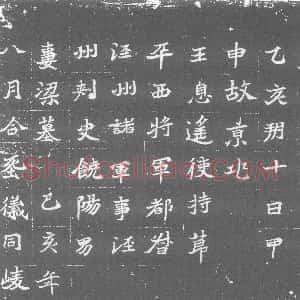 乙亥朔十日甲
申故京兆
王息遙使持節
平西將軍都督
涇州諸軍事涇
州刺史饒陽男
妻梁墓己亥年
八月合葬儀同陵